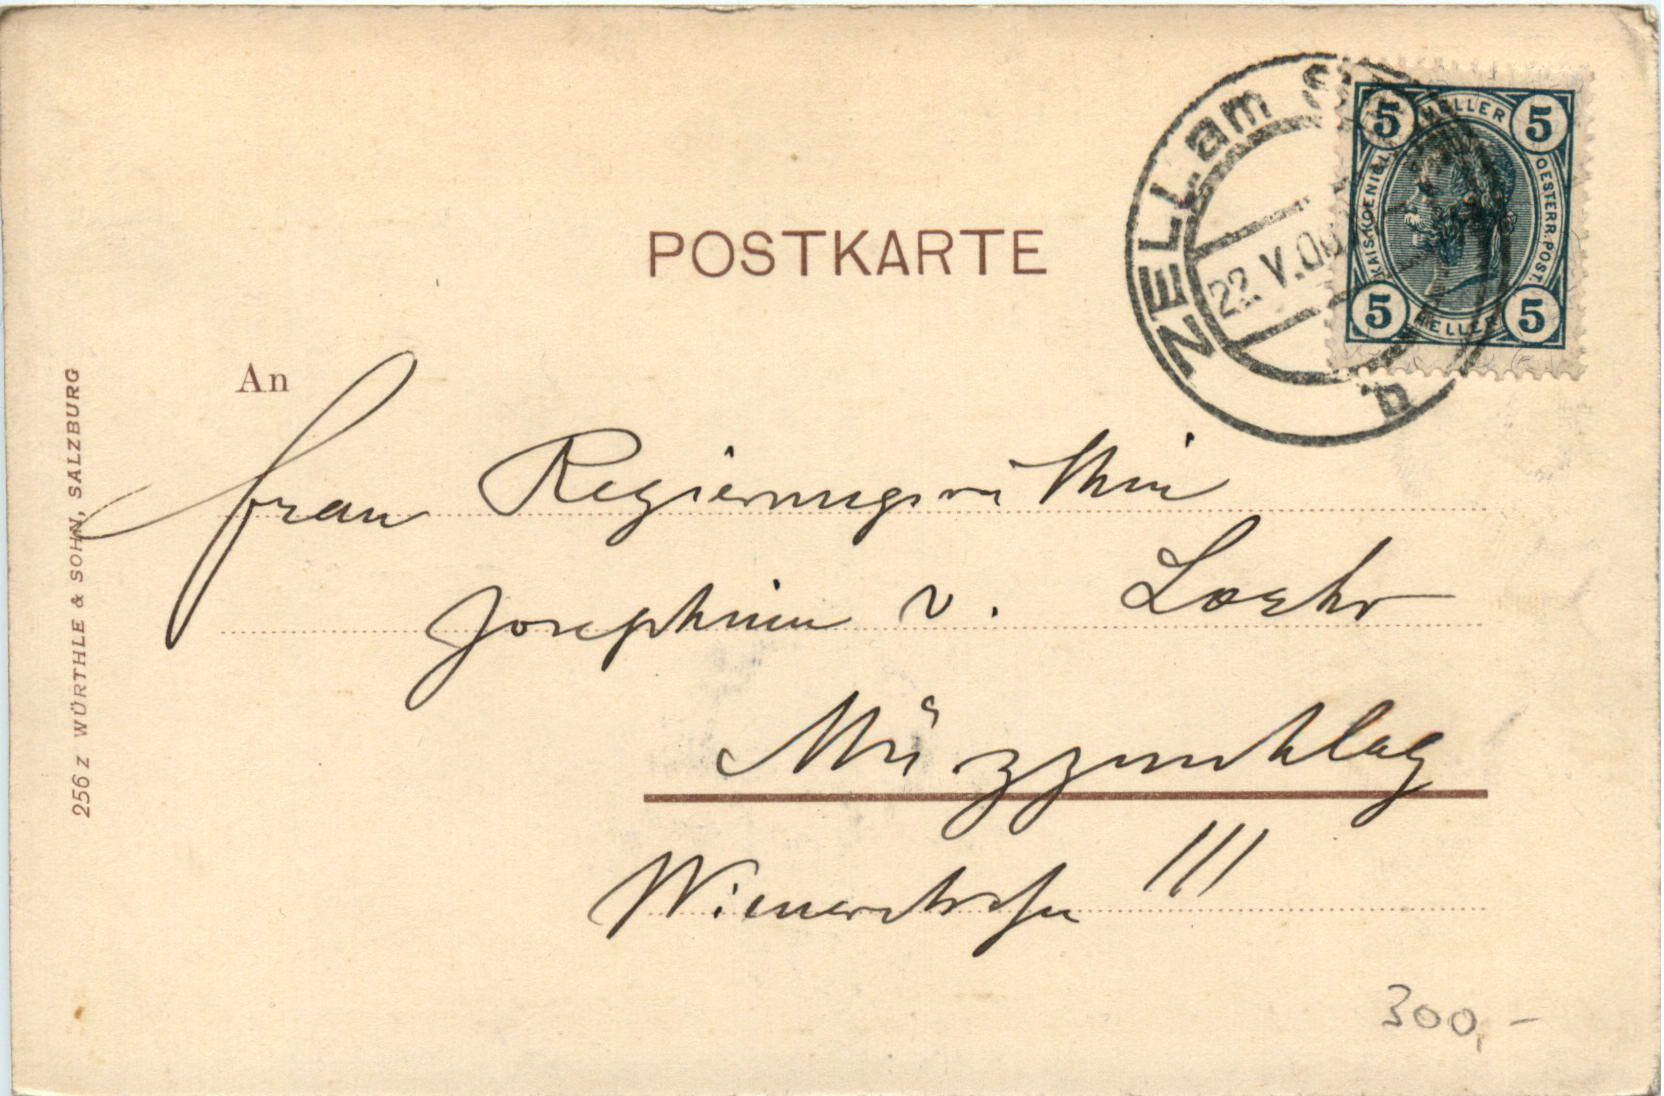 POSTKARTE
ZELL am
22. V. 06
b
5 HELLER 5
KAIS. KOENIGL.
OESTERR. POST.
5 HELLER 5
An
Frau Regierungsräthin
Josephine v. Loehr
Mürzzuschlag
Wienerstrasse III
300,-
256 z WÜRTHLE & SOHN, SALZBURG